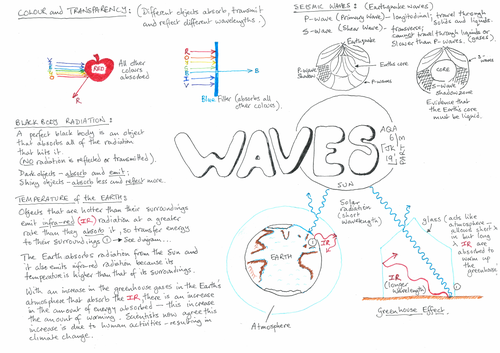 COLOUR AND TRANSPARENCY: (Different objects absorb, transmit
and reflect different wavelengths.)
RED
R
All other
colours
absorbed
R
O
Y
G
B
I
V
B
Blue Filter (absorbs all
other colours).
SEISMIC WAVES: (Earthquake waves)
P-wave (Primary Wave) - longitudinal; travel through
solids and liquids.
S-wave (Shear Wave) - transverse;
cannot travel through liquids or
slower than P-waves. (gases).
Earthquake
P-wave
Shadow
Earth's core
CORE
S-wave
shadow zone
Evidence that
the Earth's core
must be liquid.
BLACK BODY RADIATION:
A perfect black body is an object
that absorbs all of the radiation
that hits it.
(NO radiation is reflected or transmitted).
Dark objects - absorb and emit;
Shiny objects - absorb less and reflect more.
WAVES
AQA
PART
SUN
TEMPERATURE OF THE EARTH:
Objects that are hotter than their surroundings
emit infra-red (IR) radiation at a greater
rate than they absorb it, so transfer energy
to their surroundings ① → See diagram...
The Earth absorbs radiation from the Sun and
it also emits infra-red radiation because its
temperature is higher than that of its surroundings.
With an increase in the greenhouse gases in the Earth's
atmosphere that absorb the IR, there is an increase
in the amount of energy absorbed - this increases
the amount of warming. Scientists now agree this
increase is due to human activities - resulting in
climate change.
Solar
radiation
(short
wavelength)
①
IR
EARTH
Atmosphere
glass (acts like
atmosphere -
allowed short λ
in but long
λ IR are
absorbed to
warm up
the greenhouse
IR
(longer
wavelength)
①
Greenhouse Effect.